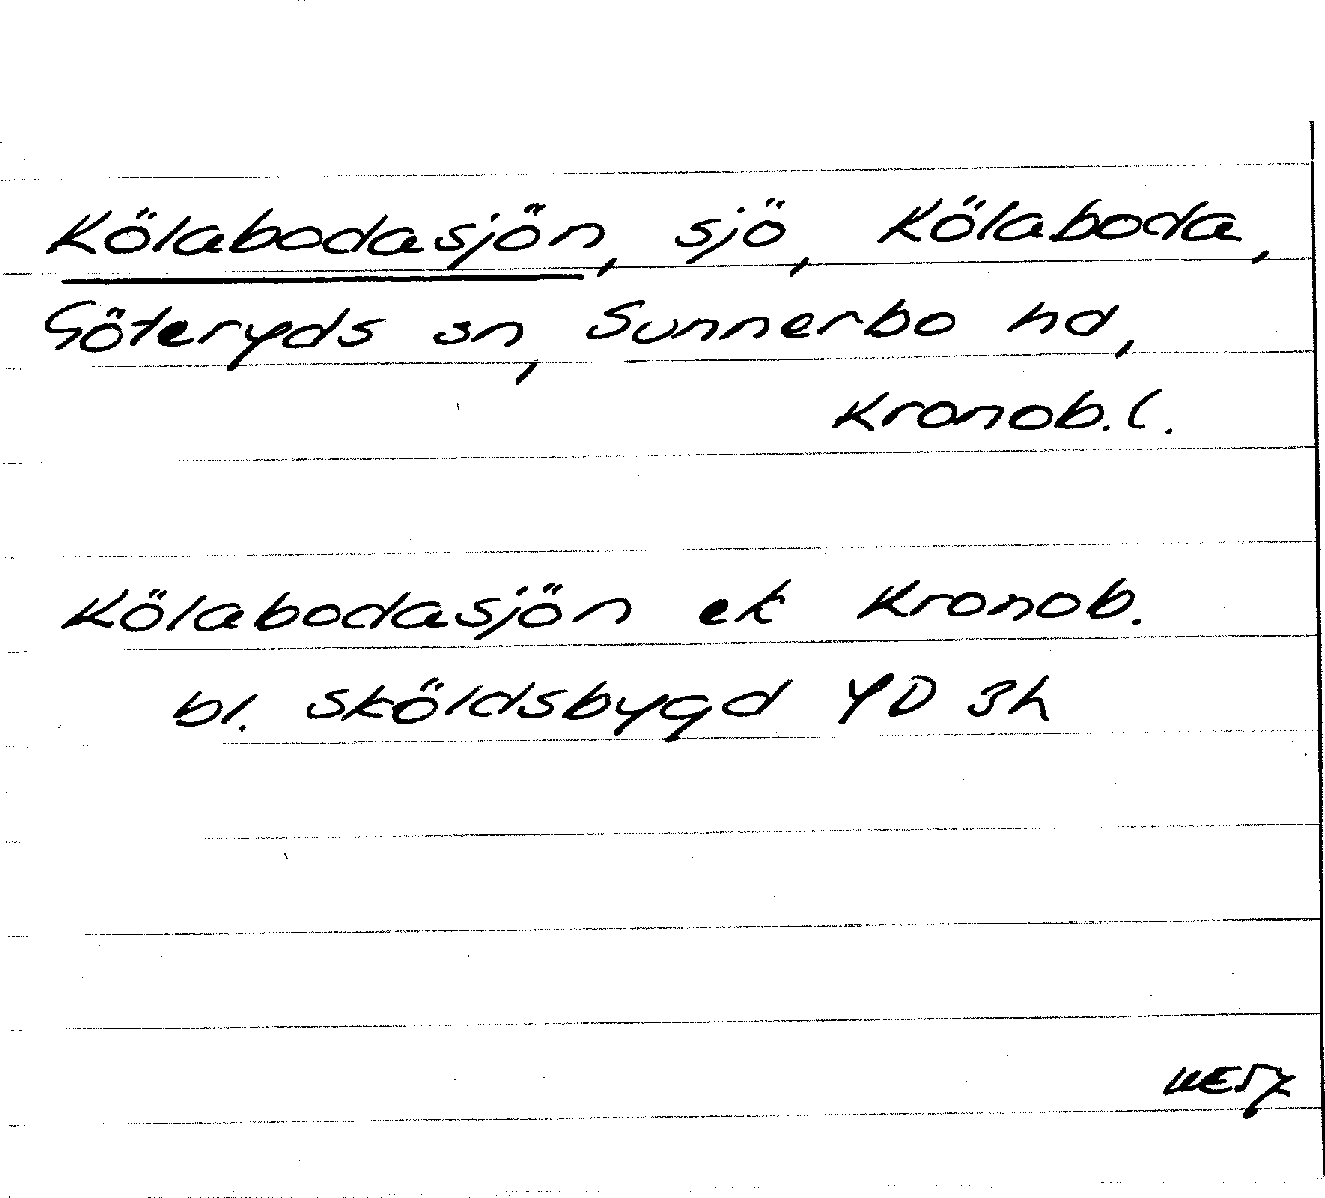 Kölabodasjön, sjö, Kölaboda,
Göteryds sn, Sunnerbo hd,
Kronob. l.
Kölabodasjön ek Kronob.
bl. Sköldsbygd YD 3h